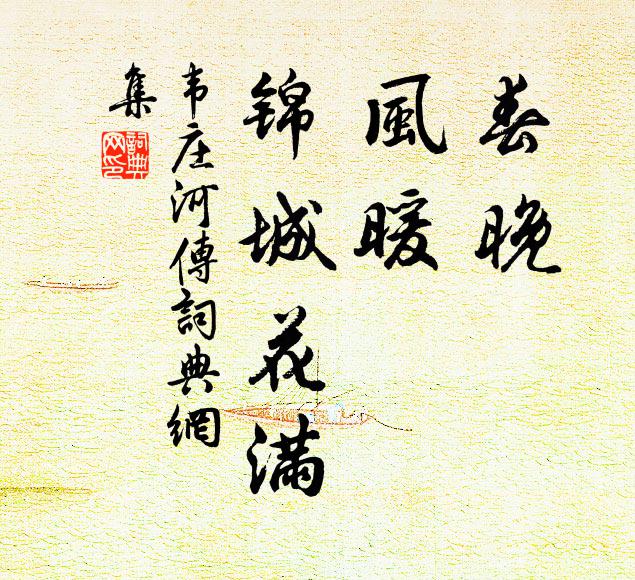 春晚
風暖
锦城花满
韦庄河傳詞典網
集
詞典網印